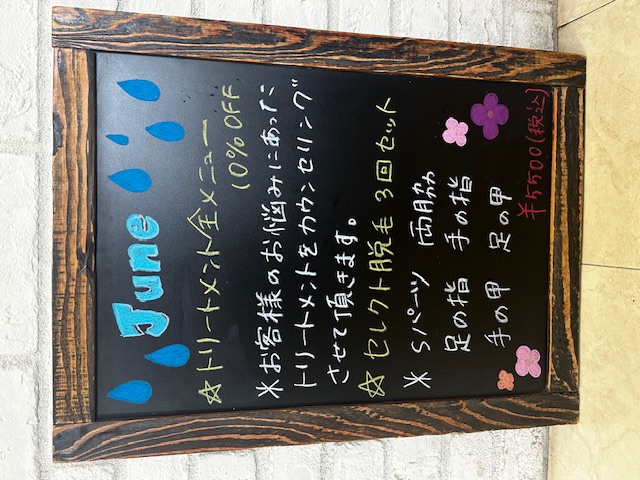 June
☆トリートメント全メニュー
10%OFF
※お客様のお悩みにあった
トリートメントをカウンセリング
させて頂きます。
☆セレクト脱毛3回セット
※Sパーツ 両脇
足の指 手の指
手の甲 足の甲
¥5500(税込)